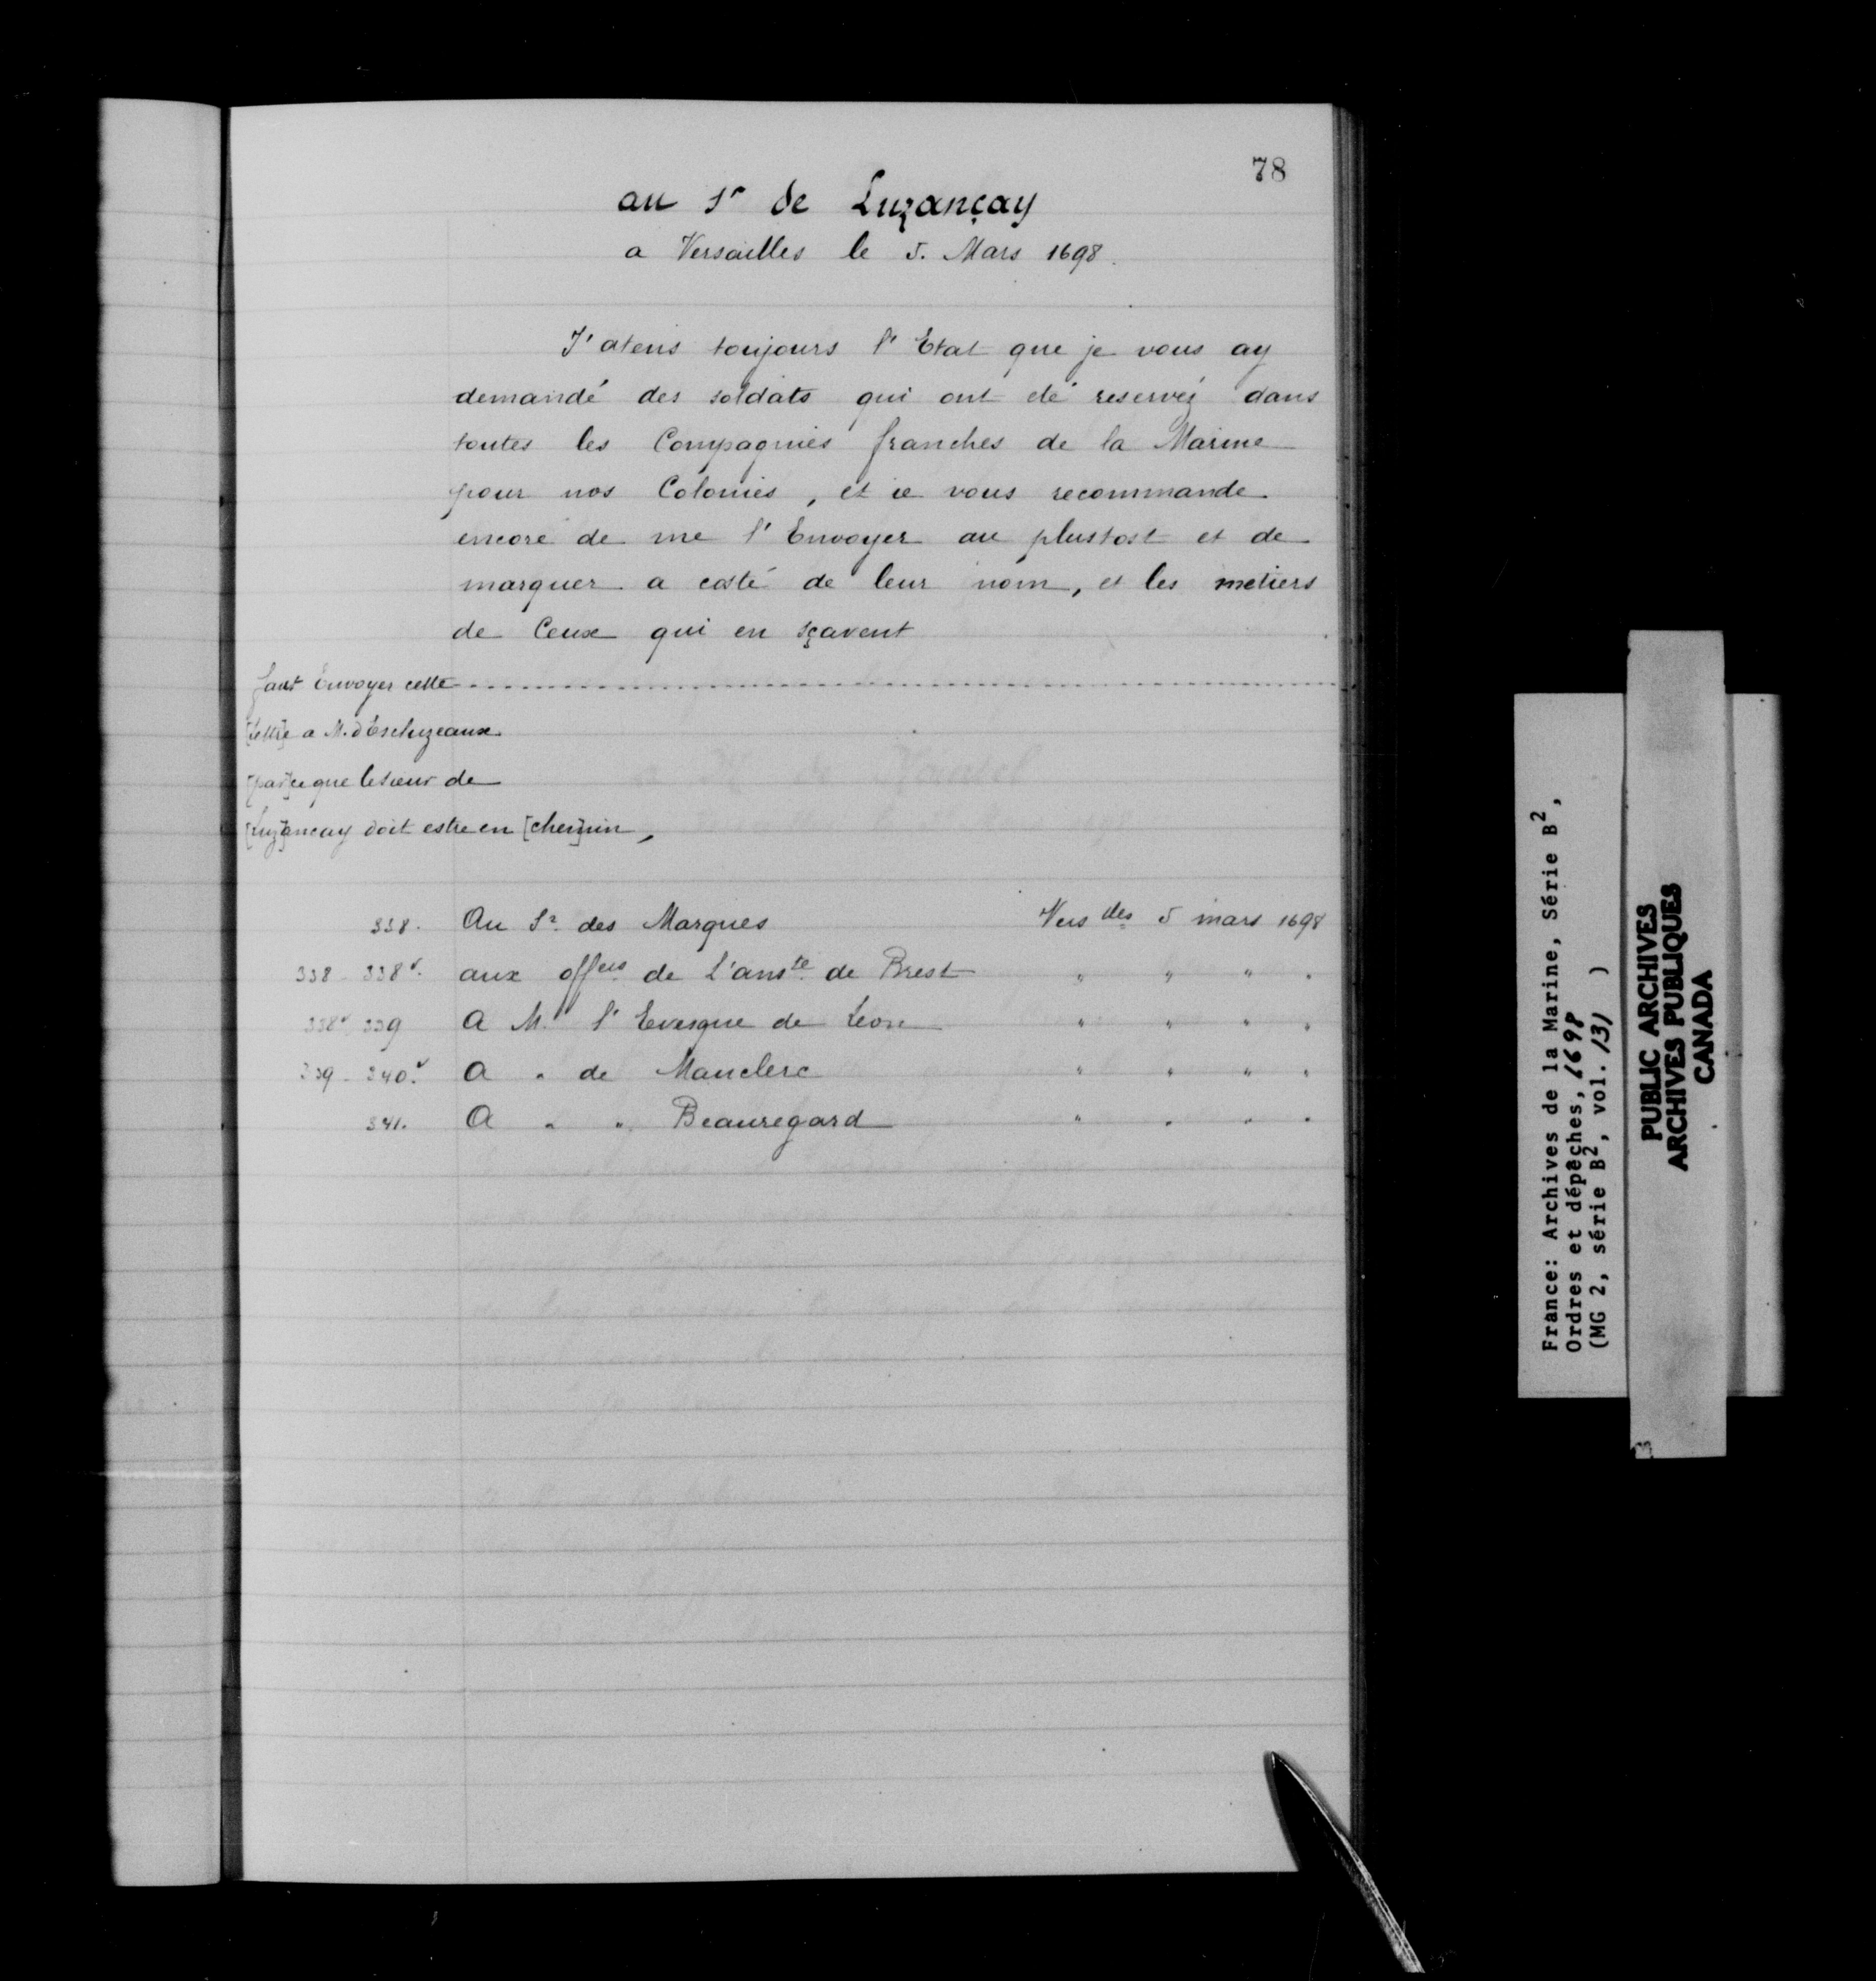 78
au Sr de Luzançay
a Versailles le 5. Mars 1698.
J'atens toujours l'Etat que je vous ay
demandé des soldats qui ont eté reservéz dans
toutes les Compagnies franches de la Marine
pour nos Colonies, et ie vous recommande
encore de me l'Envoyer au plustost et de
marquer a costé de leur nom, et les metiers
de Ceux qui en sçavent
faut Envoyer cette
[lettre] a M. d'Escluzeaux
[par]ce que le sieur de
[Luz]ancay doit estre en [che]min,
338. Au Sr des Marques Versles 5 mars 1698
338 - 338v. aux offers de L'amté de Brest " " " "
338v 339 A M. l'Evesque de Leon " " " "
339 - 340.v A " de Mauclerc " " " "
341. A " " Beauregard " " " "
France: Archives de la Marine, Série B2,
Ordres et dépêches, 1698
(MG 2, série B2, vol. 131 )
PUBLIC ARCHIVES
ARCHIVES PUBLIQUES
CANADA